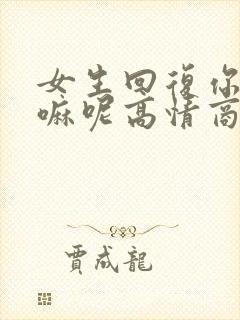 女生回復你
嘛呢高情商
賈成龍